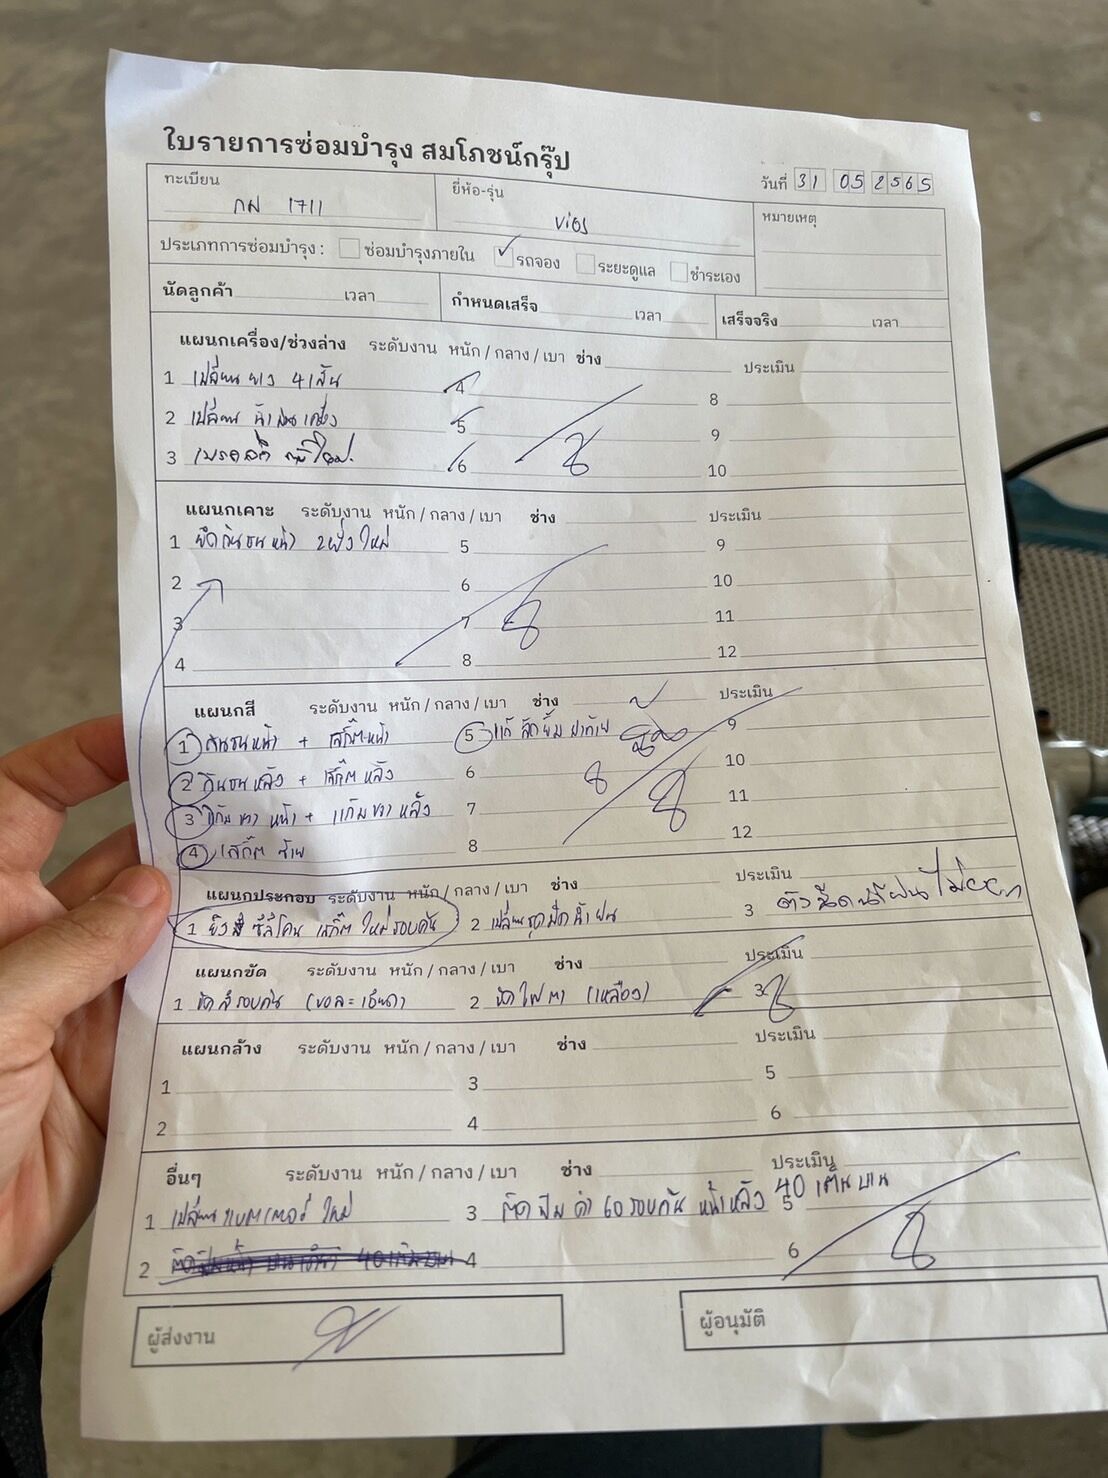 ใบรายการซ่อมบำรุง สมโภชน์กรุ๊ป
วันที่ 31 05 2565
ทะเบียน ยี่ห้อ-รุ่น หมายเหตุ
กผ 1711 Vios
ประเภทการซ่อมบำรุง : ซ่อมบำรุงภายใน รถจอง ระยะดูแล ชำระเอง
นัดลูกค้า เวลา กำหนดเสร็จ เวลา เสร็จจริง เวลา
แผนกเครื่อง/ช่วงล่าง ระดับงาน หนัก / กลาง / เบา ช่าง ประเมิน
1 เปลี่ยน ยาง 4 เส้น 4 8
2 เปลี่ยน น้ำมันเครื่อง 5 9
3 6 10
แผนกเคาะ ระดับงาน หนัก / กลาง / เบา ช่าง ประเมิน
1 ยึดกันชนหน้า 2 ฝั่ง ใหม่ 5 9
2 6 10
3 7 11
4 8 12
แผนกสี ระดับงาน หนัก / กลาง / เบา ช่าง ประเมิน
1 กันชนหน้า + เสกิ๊ตหน้า 5 แก้ 9
2 กันชน หลัง + เสกิ๊ต หลัง 6 10
3 แก้ม ขวา หน้า + แก้ม ขวา หลัง 7 11
4 เสกิ๊ต ซ้าย 8 12
แผนกประกอบ ระดับงาน หนัก / กลาง / เบา ช่าง ประเมิน
1 ยิง ซิลิโคน เสกิ๊ต ใหม่ รอบคัน 2 เปลี่ยน ชุด ฉีด น้ำ ฝน 3 ตัว ฉีด น้ำฝน ไม่ออก
แผนกขัด ระดับงาน หนัก / กลาง / เบา ช่าง ประเมิน
1 ขัด สี รอบคัน 2 ขัด ไฟ ตา (เหลือง) 3
แผนกล้าง ระดับงาน หนัก / กลาง / เบา ช่าง ประเมิน
1 3 5
2 4 6
อื่นๆ ระดับงาน หนัก / กลาง / เบา ช่าง ประเมิน
1 เปลี่ยน แบตเตอรี่ ใหม่ 3 ติด ฟิล์ม ดำ 60 รอบคัน หน้าหลัง 40 เต็ม บาน 5
2 4 6
ผู้ส่งงาน ผู้อนุมัติ